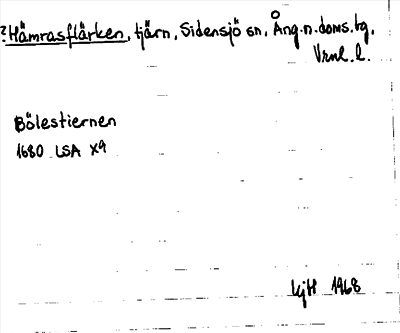 ?Hämrasflärken, tjärn, Sidensjö sn, Ång.n.doms.bg,
Vrnl. l.
Bölestiernen
1680 LSA X9
KjH 1968